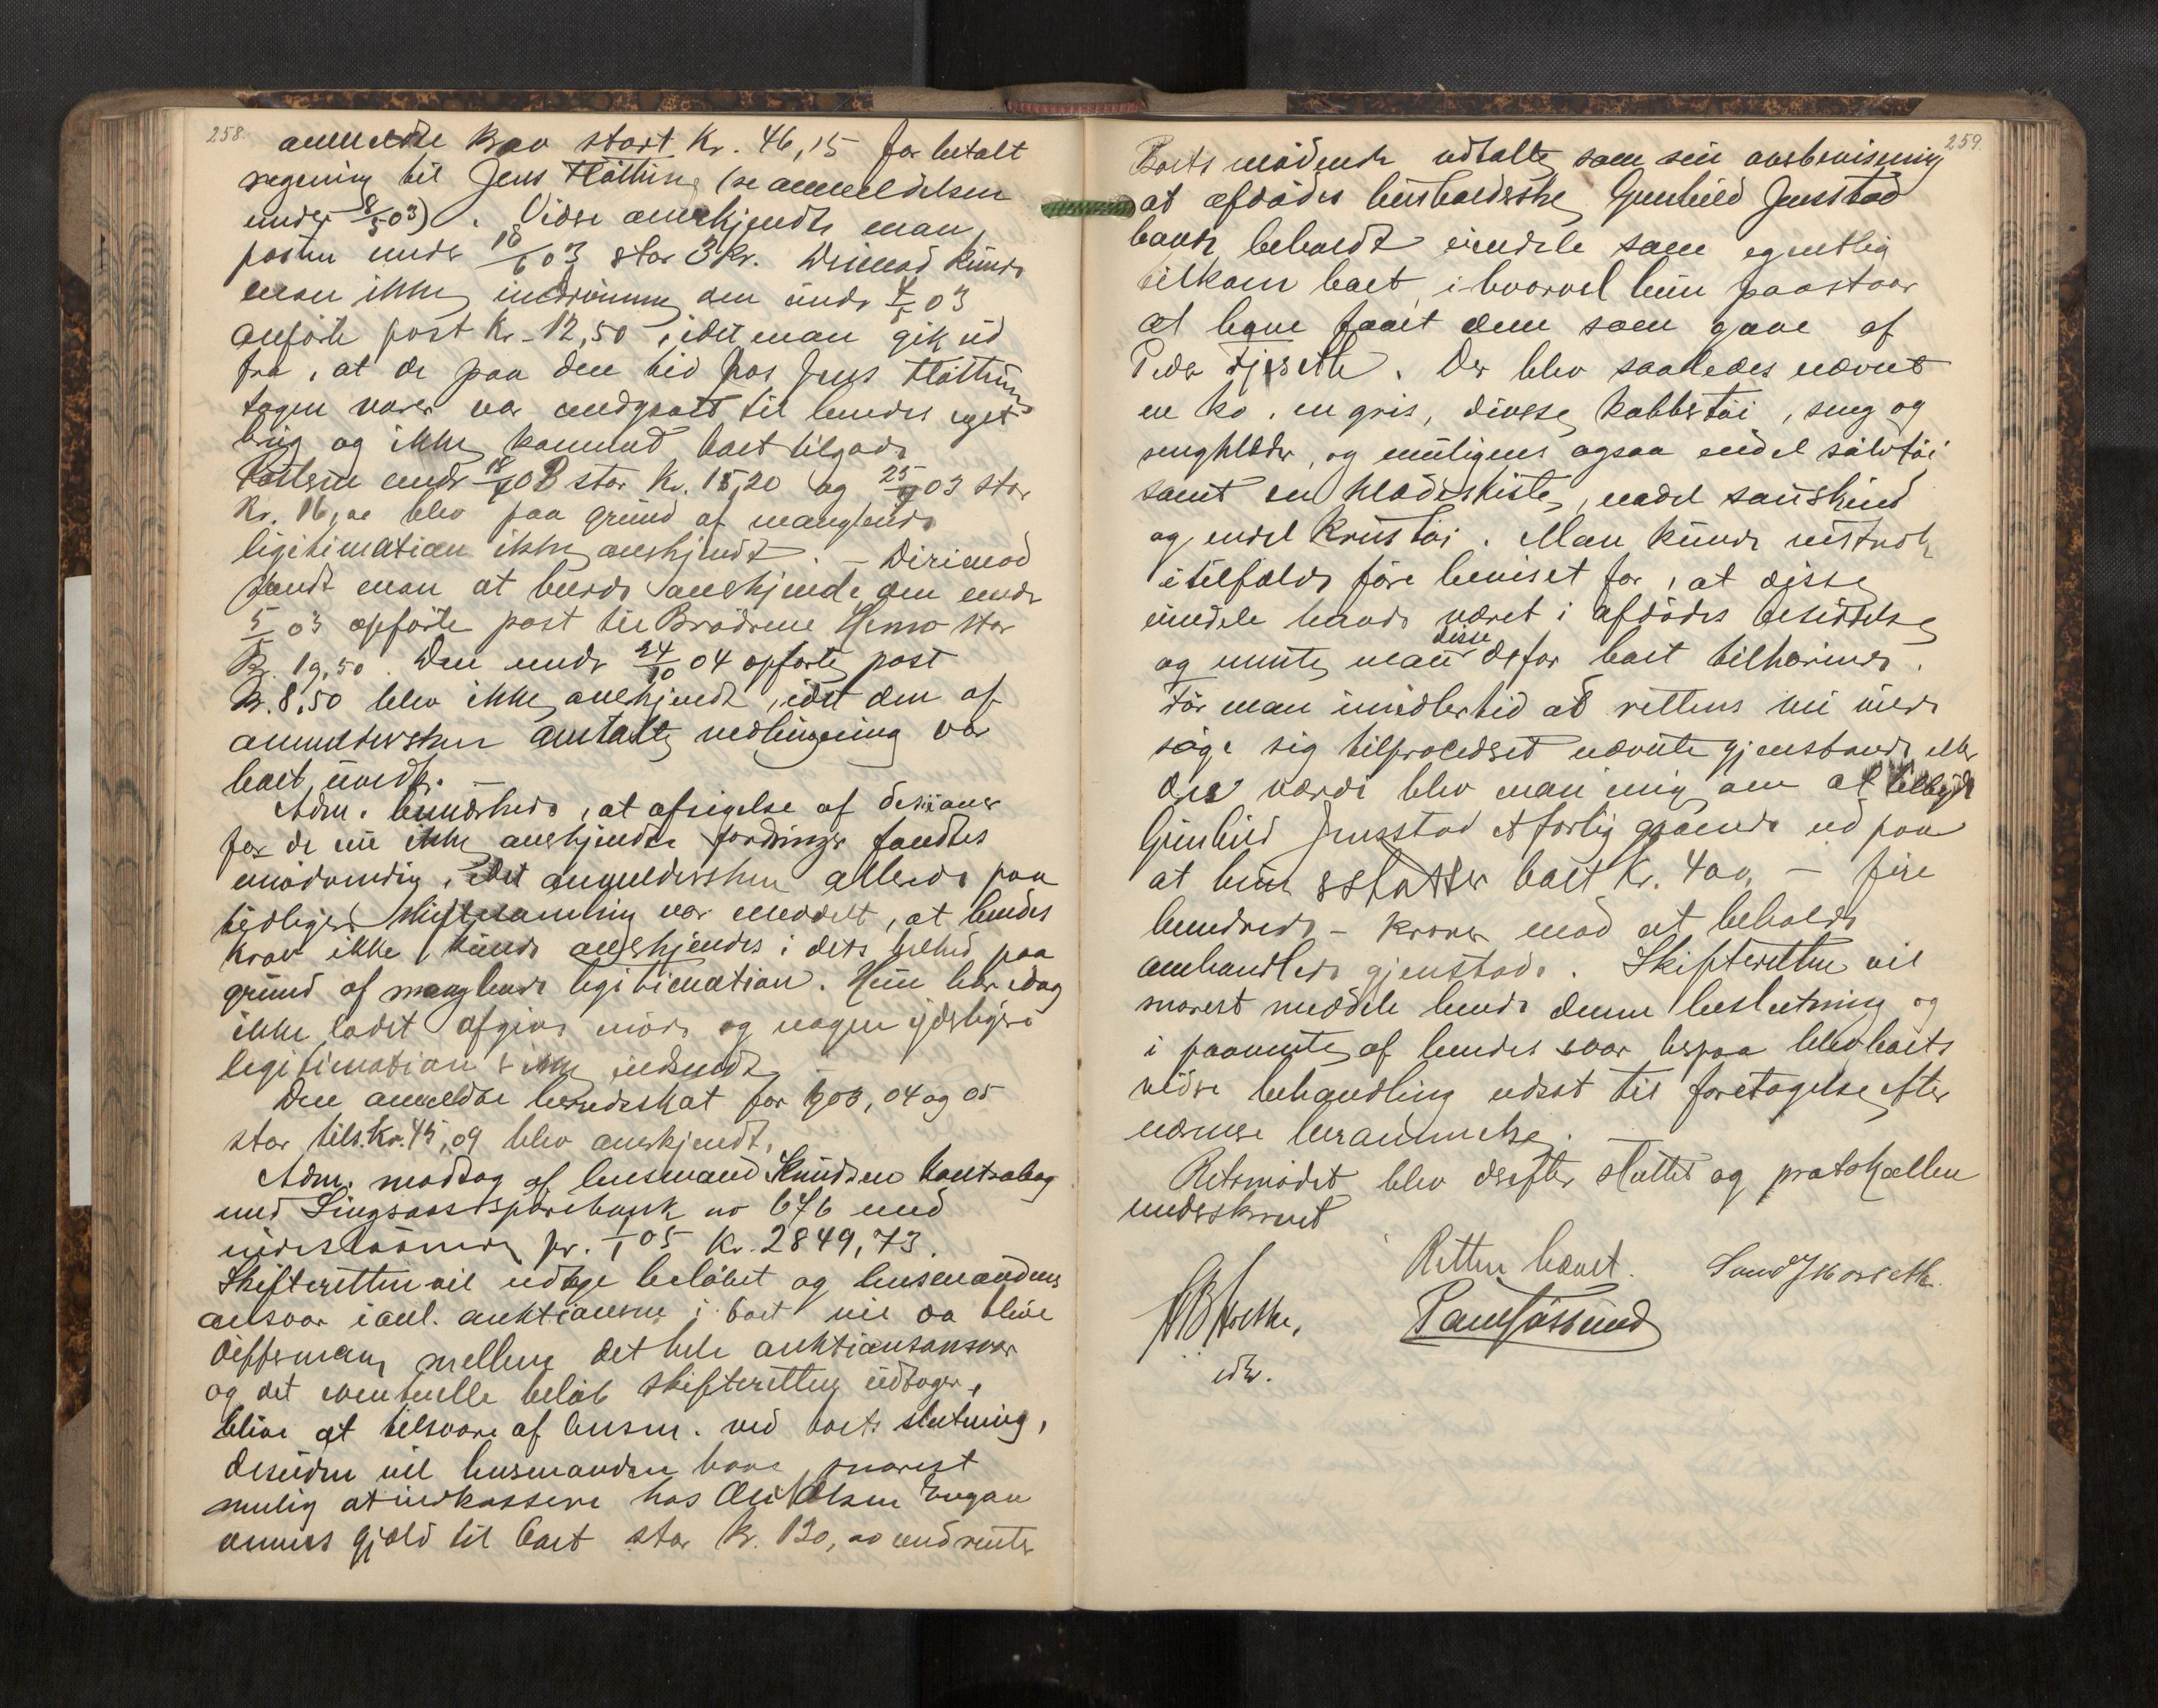 258.
anmeldte krav stort Kr. 46,15 for betalt
regning til Jens Fløttum (se anmeldelsen
under 8/5 03). Videre anerkjendte man
posten under 18/6 03 stor 3 kr. Derimod kunde
man ikke indrømme den under 4/5 03
anførte post kr. 12,50, idet man gik ud
fra, at de paa den tid hos Jens Fløttum
tagne varer var medgaat til hendes eget
brug og ikke kommed boet tilgode
stor Kr. 15,20 og 25/ 03 stor
Kr. 16,00 blev paa grund af manglende
legitimation ikke anerkjendt. – Derimod
fandt man at burde anerkjende den under
5/5 03 opførte post til Brødrene Hemo stor
Kr. 19,50. Den under 24/10 04 opførte post
Kr. 8,50 blev ikke anerkjendt, idet den af
anmeldersken antatte var
boet uvedk. –
Adm. bemærkede, at afsigelse af decisioner
for de nu ikke anerkjendte fordringer fandtes
unødvendig, idet anmeldersken allerede paa
tidligere skiftesamling var meddelt, at hendes
krav ikke kunde anerkjendes i dets helhed paa
grund af manglende legitimation. Hun har idag
ikke ladet afgive møde og nogen yderligere
legitimation er ikke indsendt.
Den anmeldte herredsskat for 1903, 04 og 05
stor tils. Kr. 45,09 blev anerkjendt.
Adm. modtog af lensmand Knudsen kontrabog
med Singsaas sparebank no 646 med
indestaaende pr. 1/1 05 Kr. 2849,73.
Skifteretten vil udtage beløbet og lensmandens
ansvar i anl. auktionerne i boet vil da blive
differencen mellem det hele auktionsansvar
og det eventuelle beløb skifteretten udtager,
blive at tilsvare af lensm. ved boets slutning,
desuden vil lensmanden have snarest
mulig at indkassere hos Ole Olsen Engan
dennes gjæld til boet stor Kr. 130,00 med renter
259.
Boets mødende udtalte som sin overbevisning
at afdødes husholderske Gunhild Jensstad
havde beholdt eiendele som egentlig
tilkom boet, i hvorvel hun paastaar
at have faaet dem som gave af
Peder Fjeseth. Der blev saaledes nævnt
en ko, en gris, diverse kobbertøi, seng og
sengklæder, og muligens ogsaa endel sølvtøi
samt en klædeskiste, endel saueskind
og endel krustøi. Man kunde nistnok
i tilfælde føre beviset for, at disse
eiendele havde været i afdødes besiddelse
og mente man disse derfor boet tilhørende.
Før man imidlertid ad rettens vei vilde
søge sig tilprocedset nævnte gjenstande eller
deres værdi blev man enig om at tilbyde
Gunhild Jensstad et forlig gaaende ud paa
at hun erstatter boet Kr. 400, – fire
hundrede – kroner mod at beholde
omhandlede gjenstade. Skifteretten vil
snarest meddele hende denne beslutning og
i paavente af hendes svar herpaa blev boets
videre behandling udsat til foretagelse efter
nærmere berammelse. –
Retsmødet blev derefter sluttet og protokollen
underskrevet
Retten hævet.
edv.